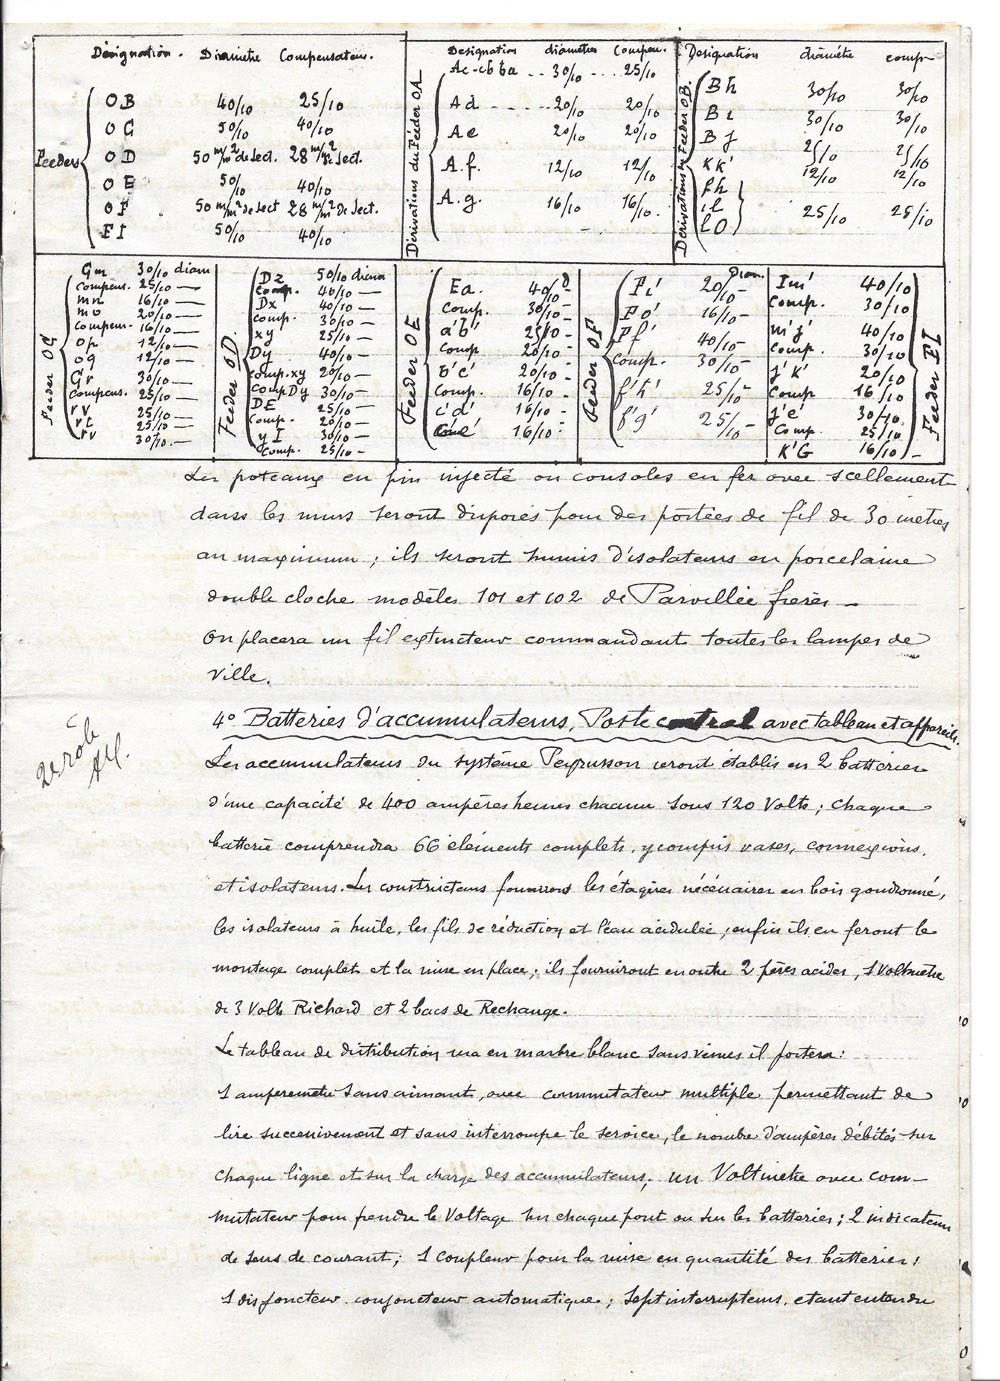 Désignation. Diamètre Compensateur.
Feeders
OB 40/10 25/10
OC 50/10 40/10
OD 50 m/m² de Sect. 28 m/m² de Sect.
OE 50/10 40/10
OF 50 m/m² de Sect 28 m/m² de Sect.
FI 50/10 40/10
Dérivations du Féeder OA
Designation diamètres Compen.
Ac-cb ba .. 30/10 ... 25/10
Ad ..... 20/10 20/10
Ae 20/10 20/10
A.f. 12/10 12/10
A.g. 16/10 16/10.
Dérivations du Feeder OB.
Designation diamètre comp
Bh 30/10 30/10
Bi 30/10 30/10
Bj 25/10 25/10
KK' 12/10 12/10
fh
il 25/10 25/10
lO
Feeder OG
Gm 30/10 diam
Compens. 25/10 —
mn 16/10 —
mo 20/10 —
compens. 16/10 —
op 12/10 —
oq 12/10 —
Gr 30/10 —
Compens. 25/10 —
rv 25/10 —
rt 25/10 —
rv 30/10. —
Feeder OD.
Dz 50/10 diam
Comp. 40/10 —
Dx 40/10 —
comp. 30/10 —
xy 25/10 —
Dy 40/10 —
Comp. xy 20/10 —
Comp Dy 30/10 —
DE 25/10 —
Comp. 20/10 —
yI 30/10 —
Comp. 25/10 -
Feeder OE
Ea. 40/10 D
Comp. 30/10 -
a'b' 25/10 -
Comp 20/10 -
b'c' 20/10 -
Comp. 16/10 -
c'd' 16/10 -
16/10 -
Feeder OF
Diam.
Fi' 20/10 -
Fo' 16/10 -
Ff' 40/10 -
Comp. 30/10 -
f'h' 25/10 -
f'g' 25/10 -
Feeder FI
Im' 40/10
Comp. 30/10
m'j' 40/10
Comp. 30/10
j'K' 20/10
Comp 16/10
j'e' 30/10
Comp. 25/10
K'G 16/10 -
Les poteaux en pin injecté ou consoles en fer avec scellement
dans les murs seront disposés pour des portées de fil de 30 mètres
au maximum ; ils seront munis d'isolateurs en porcelaine
double cloche modèles 101 et 102 de Parvillée frères —
On placera un fil extincteur commandant toutes les lampes de
Ville.
4° Batteries d'accumulateurs, Poste central avec tableau et appareils.
Les accumulateurs du système Peyrusson seront établis en 2 batteries
d'une capacité de 400 ampères heures chacune sous 120 Volts ; chaque
batterie comprendra 66 éléments complets, y compris vases, connexions,
et isolateurs. Les constructeurs fourniront les étagères nécéssaires en bois goudronné,
les isolateurs à huile, les fils de réduction et l'eau acidulée ; enfin ils en feront le
montage complet et la mise en place ; ils fourniront en outre 2 pèses acides, 1 Voltmètre
de 3 Volts Richard et 2 bacs de Rechange.
Le tableau de distribution sera en marbre blanc sans veines il portera :
1 ampèremètre sans aimant, avec commutateur multiple permettant de
lire successivement et sans interrompre le service, le nombre d'ampères débités sur
chaque ligne et sur la charge des accumulateurs, un Voltmètre avec com-
mutateur pour prendre le Voltage sur chaque pont ou sur les batteries ; 2 indicateurs
de sens de courant ; 1 coupleur pour la mise en quantité des batteries ;
1 disjoncteur conjoncteur automatique ; Sept interrupteurs, étant entendu